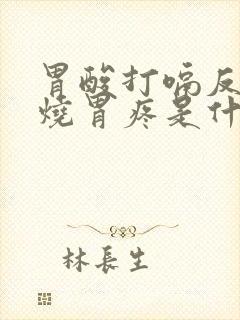 胃酸打嗝反
燒胃疼是什
林長生